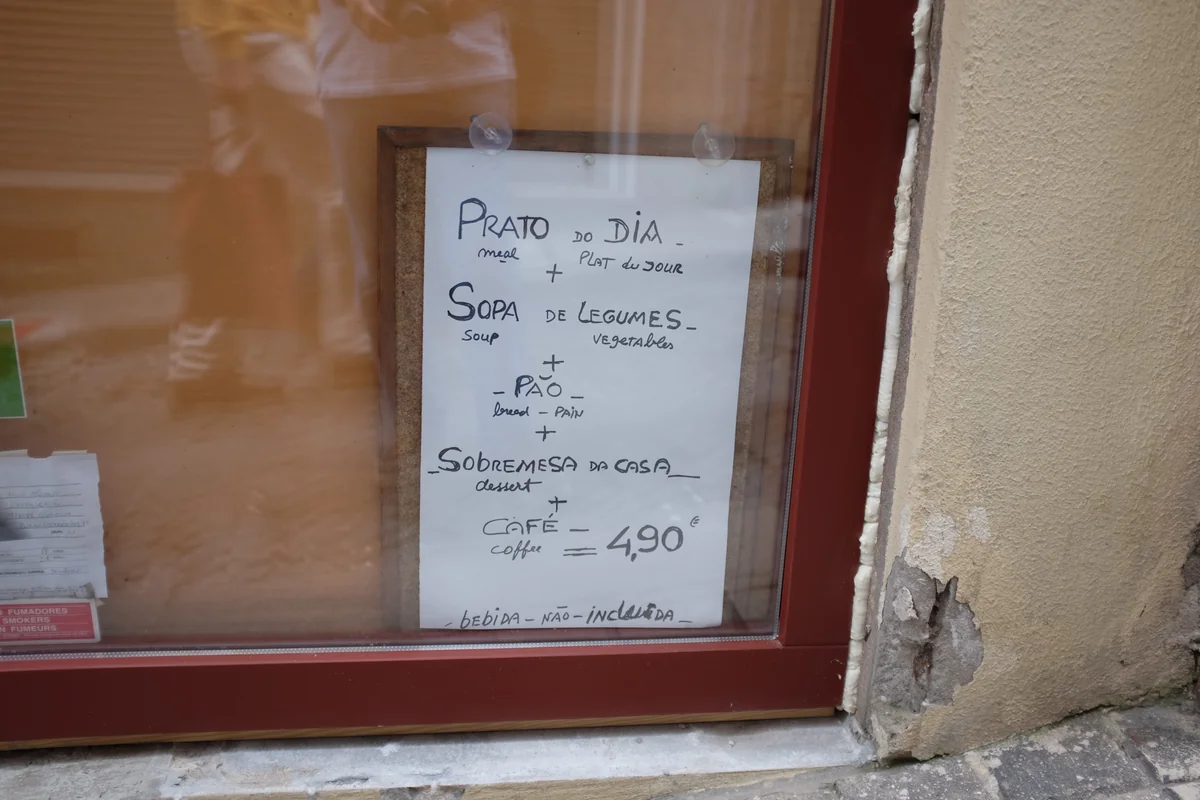 PRATO DO DIA -
meal PLAT du JOUR
+
SOPA DE LEGUMES -
soup vegetables
+
- PÃO -
bread - PAIN
+
- SOBREMESA DA CASA -
dessert
+
CAFÉ -
coffee = 4,90 €
- bEbiDA - NÃO - iNCLUiDA -
FUMADORES
SMOKERS
N FUMEURS